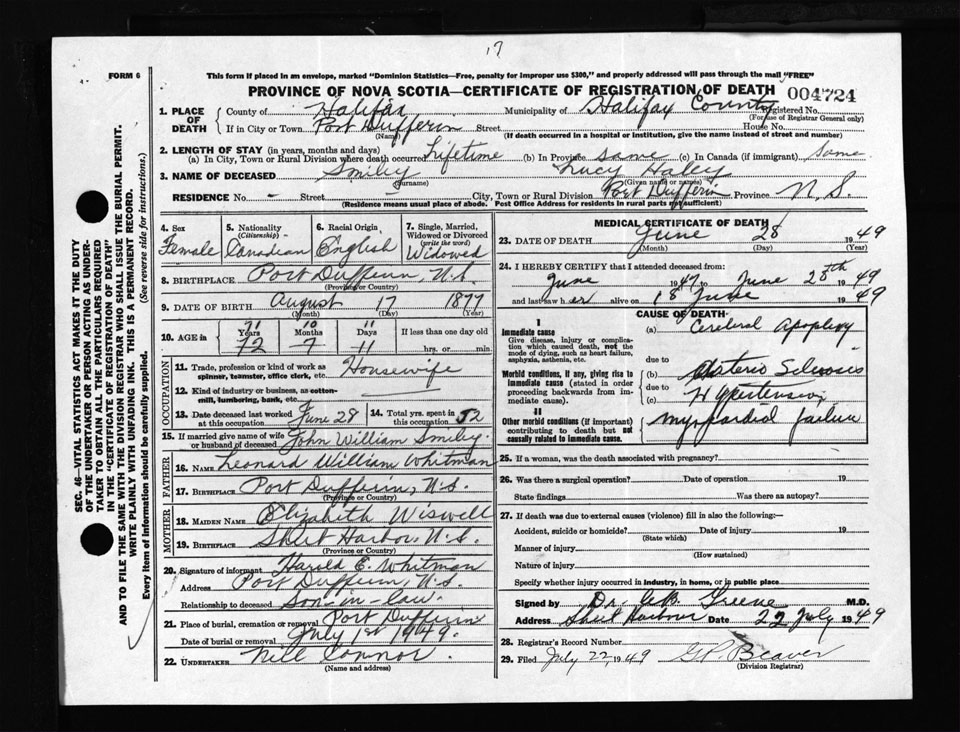 17
FORM 6
This form if placed in an envelope, marked "Dominion Statistics—Free, penalty for improper use $300," and properly addressed will pass through the mail "FREE"
PROVINCE OF NOVA SCOTIA—CERTIFICATE OF REGISTRATION OF DEATH 004724
1. PLACE OF DEATH
County of Halifax Municipality of Halifax County Registered No.
(For use of Registrar General only)
If in City or Town Port Dufferin Street House No.
(Name) (If death occurred in a hospital or institution, give the name instead of street and number)
2. LENGTH OF STAY (in years, months and days)
(a) In City, Town or Rural Division where death occurred Lifetime (b) In Province same (c) In Canada (if immigrant) same
3. NAME OF DECEASED Smiley Lucy Haley
(Surname) (Given name or names)
RESIDENCE No. - Street City, Town or Rural Division Port Dufferin Province N.S.
(Residence means usual place of abode. Post Office Address for residents in rural parts not sufficient)
4. Sex Female
5. Nationality (Citizenship) Canadian
6. Racial Origin English
7. Single, Married, Widowed or Divorced (write the word) Widowed
8. BIRTHPLACE Port Dufferin, N.S.
(Province or Country)
9. DATE OF BIRTH August 17 1877
(Month) (Day) (Year)
10. AGE in 71 10 11
Years Months Days If less than one day old
72 7 11 hrs. or min.
OCCUPATION
11. Trade, profession or kind of work as spinner, teamster, office clerk, etc. Housewife
12. Kind of industry or business, as cotton-mill, lumbering, bank, etc. —
13. Date deceased last worked at this occupation June 28
14. Total yrs. spent in this occupation 52
15. If married give name of wife or husband of deceased John William Smiley.
FATHER
16. NAME Leonard William Whitman
17. BIRTHPLACE Port Dufferin, N.S.
(Province or Country)
MOTHER
18. MAIDEN NAME Elizabeth Wiswell
19. BIRTHPLACE Sheet Harbor N.S.
(Province or Country)
20. Signature of informant Harold E. Whitman
Address Port Dufferin, N.S.
Relationship to deceased Son-in-law.
21. Place of burial, cremation or removal Port Dufferin
Date of burial or removal July 1st 1949.
22. UNDERTAKER Nill Connor.
(Name and address)
MEDICAL CERTIFICATE OF DEATH
23. DATE OF DEATH June 28 1949
(Month) (Day) (Year)
24. I HEREBY CERTIFY that I attended deceased from:
June 1947 to June 28th 1949
and last saw her alive on 18 June 1949
CAUSE OF DEATH
I
Immediate cause
Give disease, injury or complication which caused death, not the mode of dying, such as heart failure, asphyxia, asthenia, etc.
(a) Cerebral Apoplexy
due to
Morbid conditions, if any, giving rise to immediate cause (stated in order proceeding backwards from immediate cause).
(b) Arterio Sclerosis
due to
(c) Hypertension
II
Other morbid conditions (if important) contributing to death but not causally related to immediate cause.
myocardial failure
25. If a woman, was the death associated with pregnancy?
26. Was there a surgical operation? Date of operation 19
State findings Was there an autopsy?
27. If death was due to external causes (violence) fill in also the following:—
Accident, suicide or homicide? Date of injury 19
(State which)
Manner of injury
(How sustained)
Nature of injury
Specify whether injury occurred in industry, in home, or in public place
Signed by Dr. GB Greene M.D.
Address Sheet Harbour Date 22 July 1949
28. Registrar's Record Number
29. Filed July 22, 1949 G.P. Beaver
(Division Registrar)
SEC. 46—VITAL STATISTICS ACT MAKES IT THE DUTY
OF THE UNDERTAKER OR PERSON ACTING AS UNDER-
TAKER TO OBTAIN ALL THE PARTICULARS REQUIRED
IN THE "CERTIFICATE OF REGISTRATION OF DEATH"
AND TO FILE THE SAME WITH THE DIVISION REGISTRAR WHO SHALL ISSUE THE BURIAL PERMIT.
WRITE PLAINLY WITH UNFADING INK. THIS IS A PERMANENT RECORD.
Every item of information should be carefully supplied. (See reverse side for instructions.)